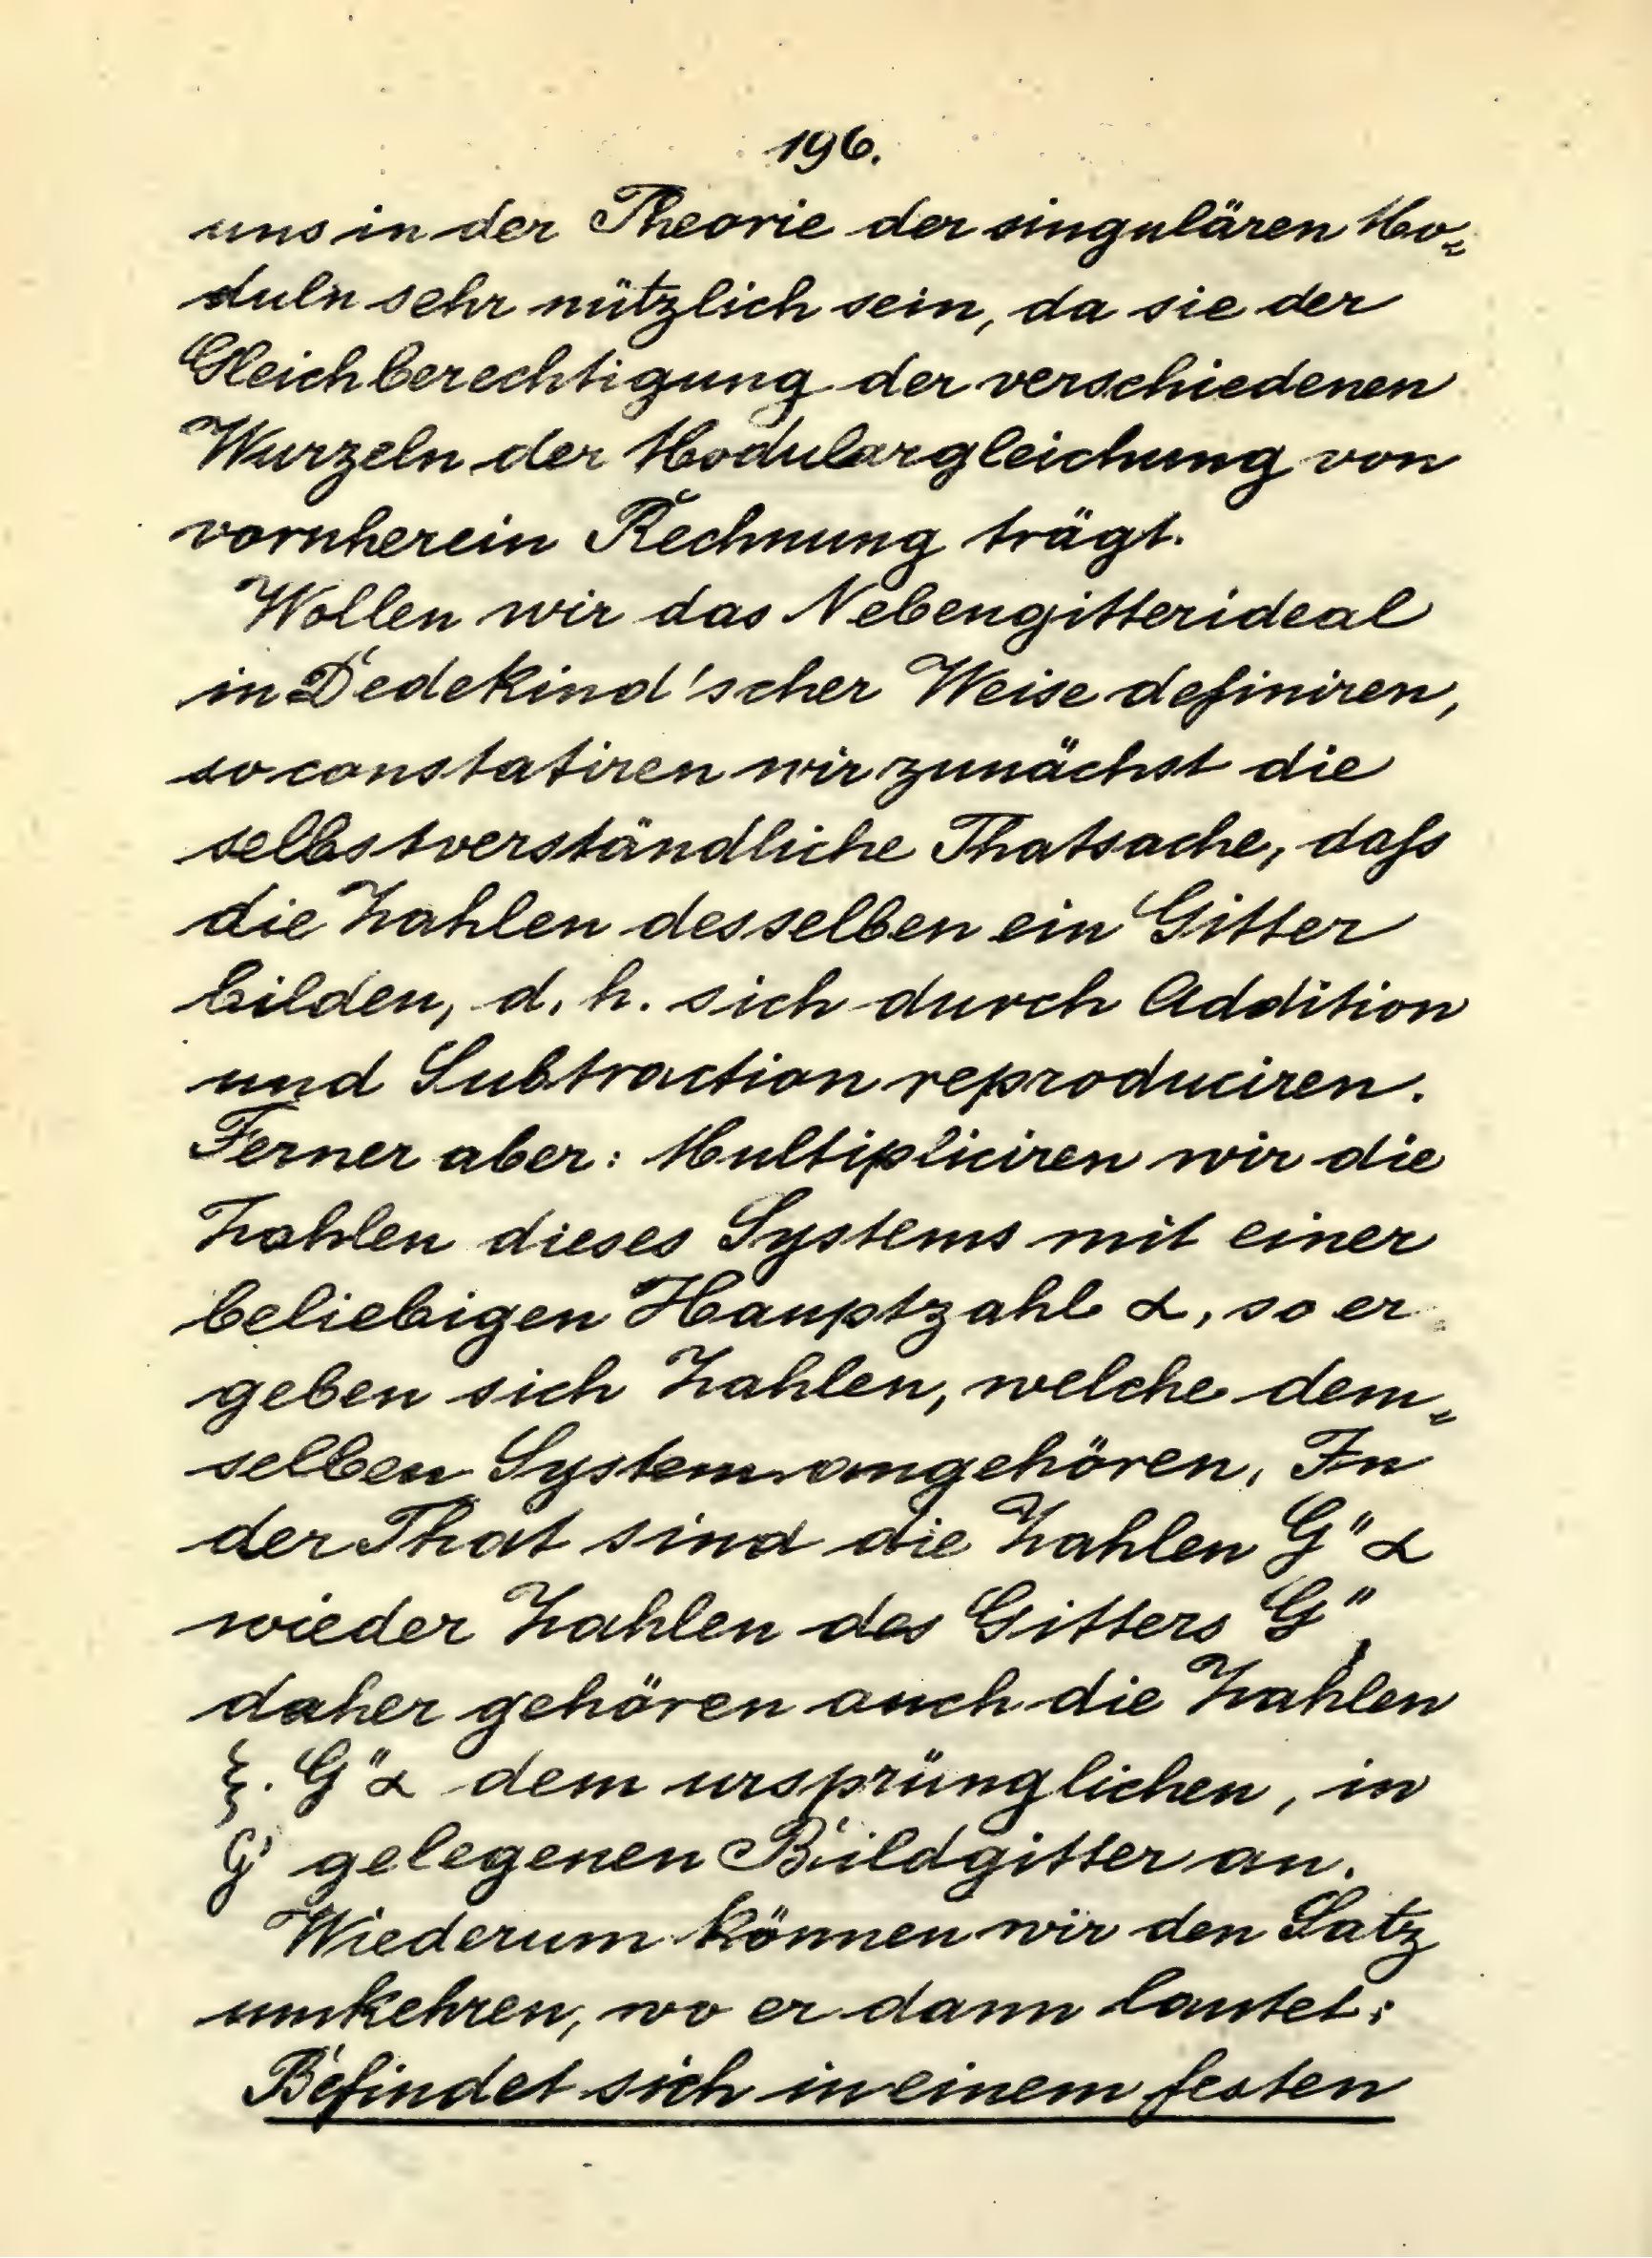 196.
uns in der Theorie der singulären Mo=
duln sehr nützlich sein, da sie der
Gleichberechtigung der verschiedenen
Wurzeln der Modulargleichung von
vornherein Rechnung trägt.
Wollen wir das Nebengitterideal
in Dedekind'scher Weise definiren,
so constatiren wir zunächst die
selbstverständliche Thatsache, daſs
die Zahlen desselben ein Gitter
bilden, d. h. sich durch Addition
und Subtraction reproduciren.
Ferner aber: Multipliciren wir die
Zahlen dieses Systems mit einer
beliebigen Hauptzahl α, so er=
geben sich Zahlen, welche dem=
selben System angehören. In
der That sind die Zahlen G"α
wieder Zahlen des Gitters G",
daher gehören auch die Zahlen
ξ. G"α dem ursprünglichen, in
G' gelegenen Bildgitter an.
Wiederum können wir den Satz
umkehren, wo er dann lautet:
Befindet sich in einem festen